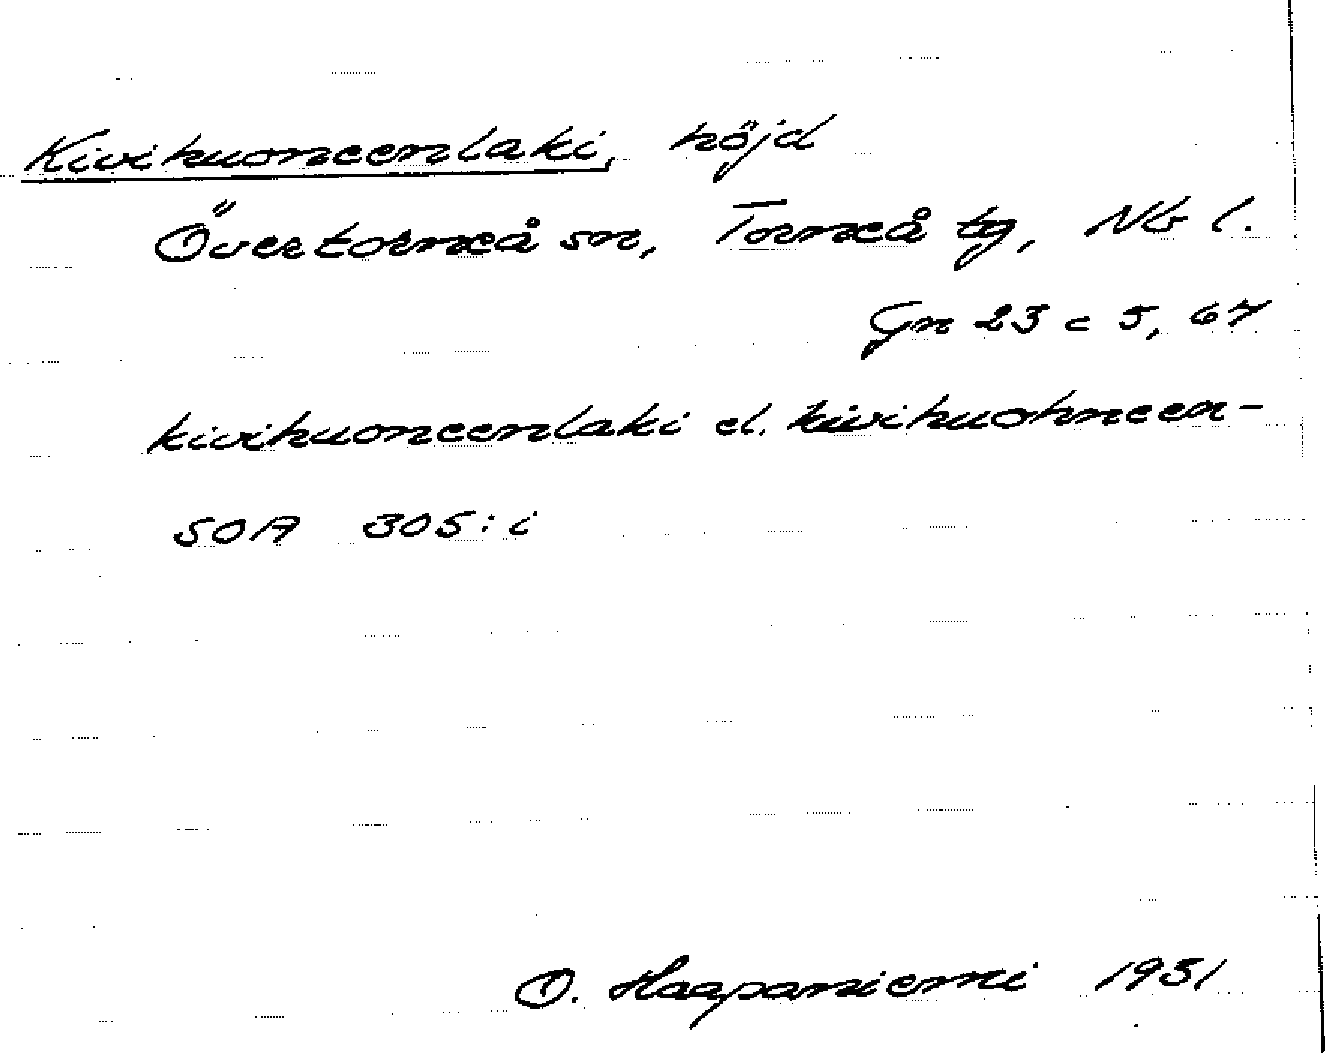 Kivihuoneenlaki, höjd
Övertorneå sn, Torneå tg, Nb l.
Gn 23 c 5, 67
kivihuoneenlaki el. kivihuohneen-
SOA 305: i
O. Haapaniemi 1931